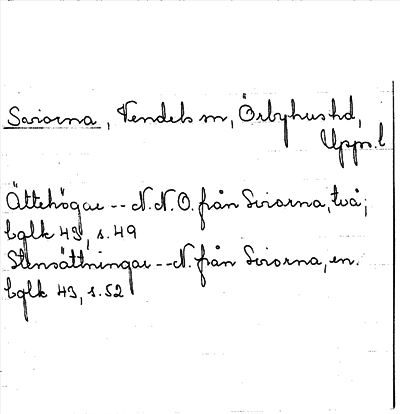 Sviorna, Vendels sn, Örbyhus hd,
Uppl.
Ättehögar -- N.N.O. från Sviorna, två;
bglk 43, s. 49
Stensättningar -- N. från Sviorna, en.
bglk 43, s. 52